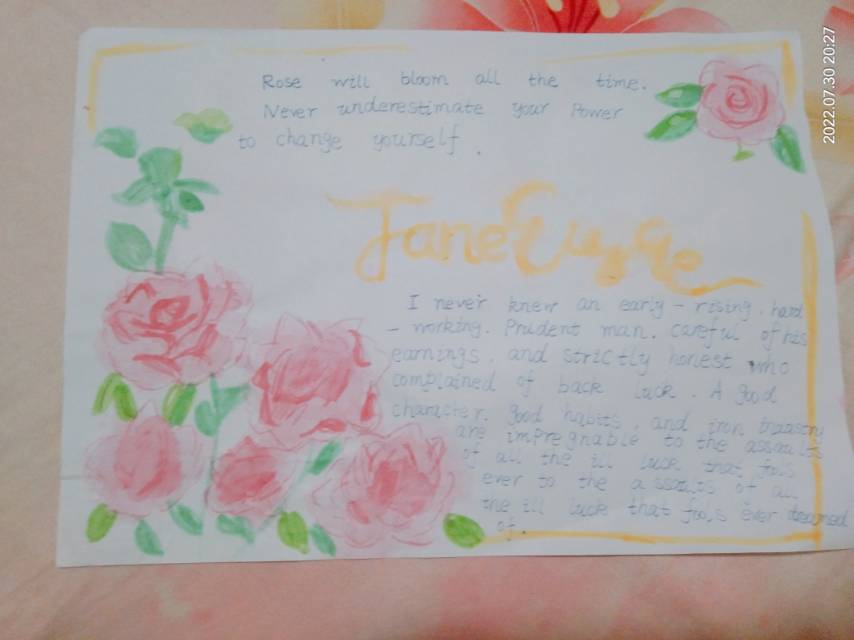 Rose will bloom all the time.
Never underestimate your Power
to change yourself.
Jane
I never knew an early-rising, hard
-working. Prudent man. careful of his
earnings, and strictly honest who
complained of back luck. A good
character. good habits, and iron
are impregnable to the assaults
of all the ill luck that fools
ever to the assaults of all
the ill luck that fools ever dreamed
of.
2022.07.30 20:27